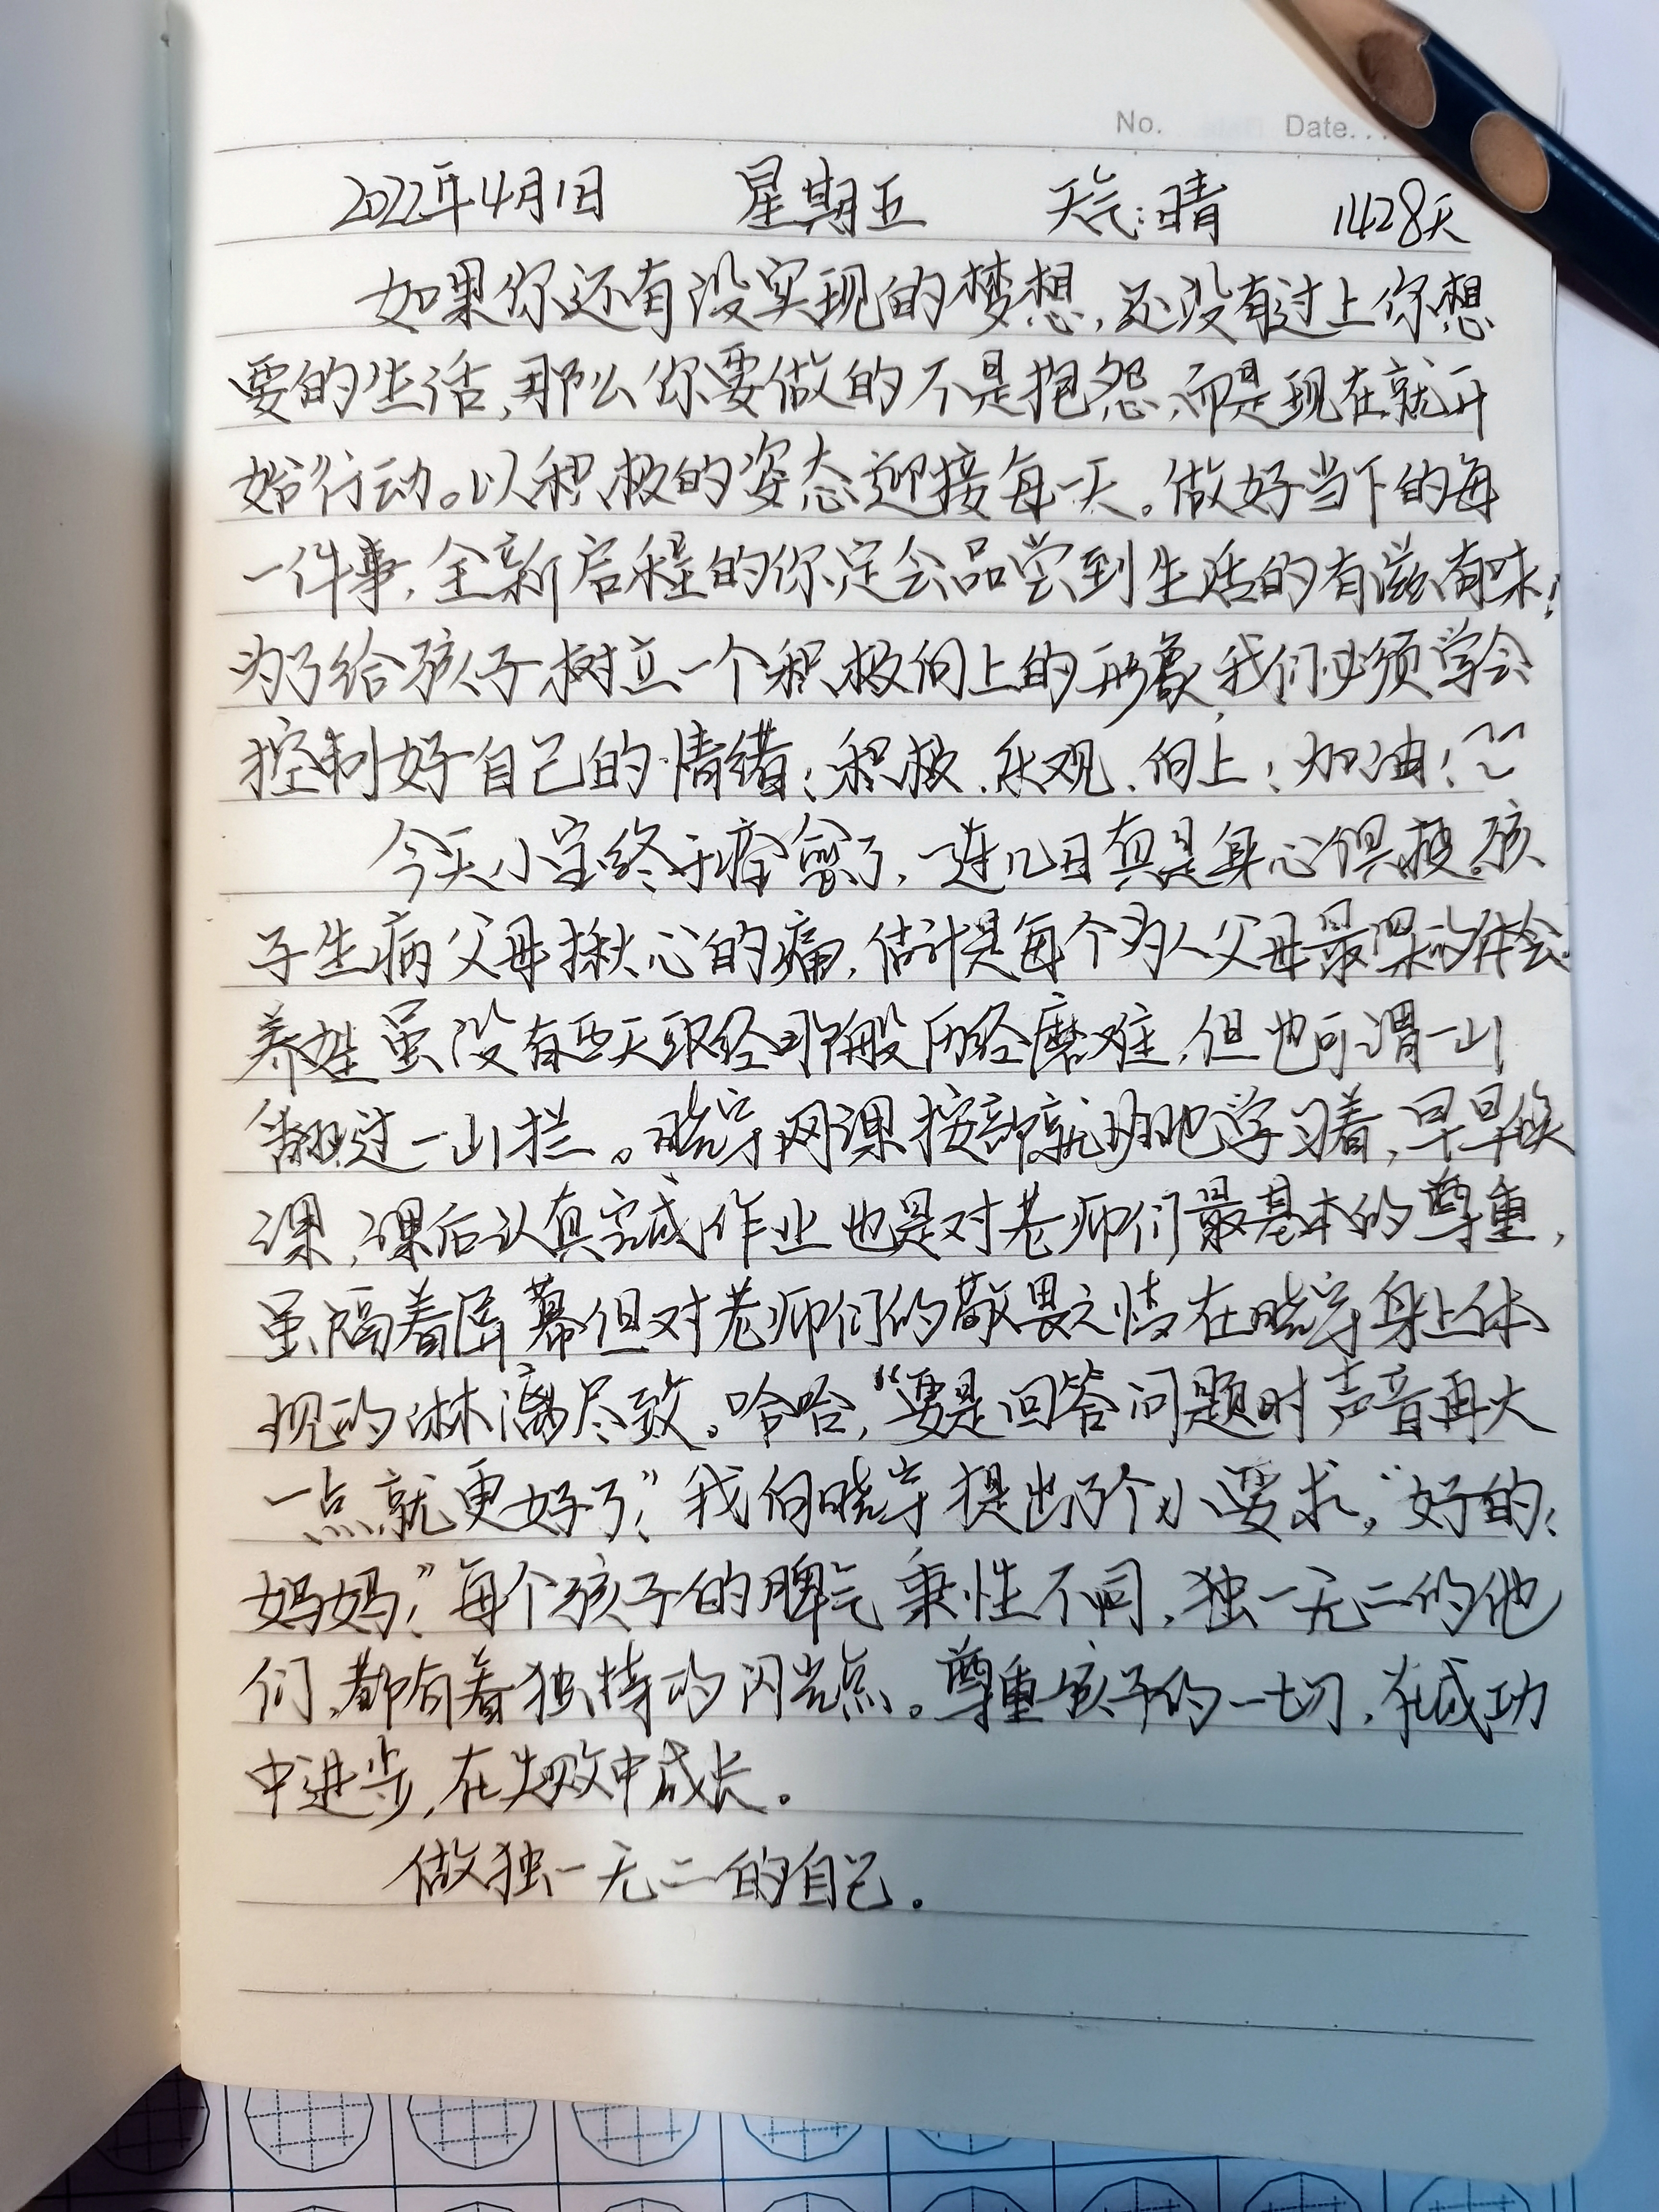 No. Date...
2022年4月1日 星期五 天气:晴 1428天
如果你还有没实现的梦想,还没有过上你想
要的生活,那么你要做的不是抱怨,而是现在就开
始行动。以积极的姿态迎接每一天。做好当下的每
一件事,全新启程的你定会品尝到生活的有滋有味!
为了给孩子树立一个积极向上的形象,我们必须学会
控制好自己的情绪!积极、乐观、向上!加油!
今天小宝终于痊愈了,一连几日真是身心俱疲。孩
子生病父母揪心的痛,估计是每个为人父母最深的体会。
养娃虽没有西天取经那般历经磨难,但也可谓一山
翻过一山拦。晓宇网课按部就班地学习着,早早候
课,课后认真完成作业也是对老师们最基本的尊重,
虽隔着屏幕但对老师们的敬畏之情在晓宇身上体
现的淋漓尽致。哈哈,“要是回答问题时声音再大
一点就更好了!”我向晓宇提出了个小要求。“好的!
妈妈!”每个孩子的脾气秉性不同,独一无二的他
们,都有着独特的闪光点。尊重孩子的一切,在成功
中进步,在失败中成长。
做独一无二的自己。